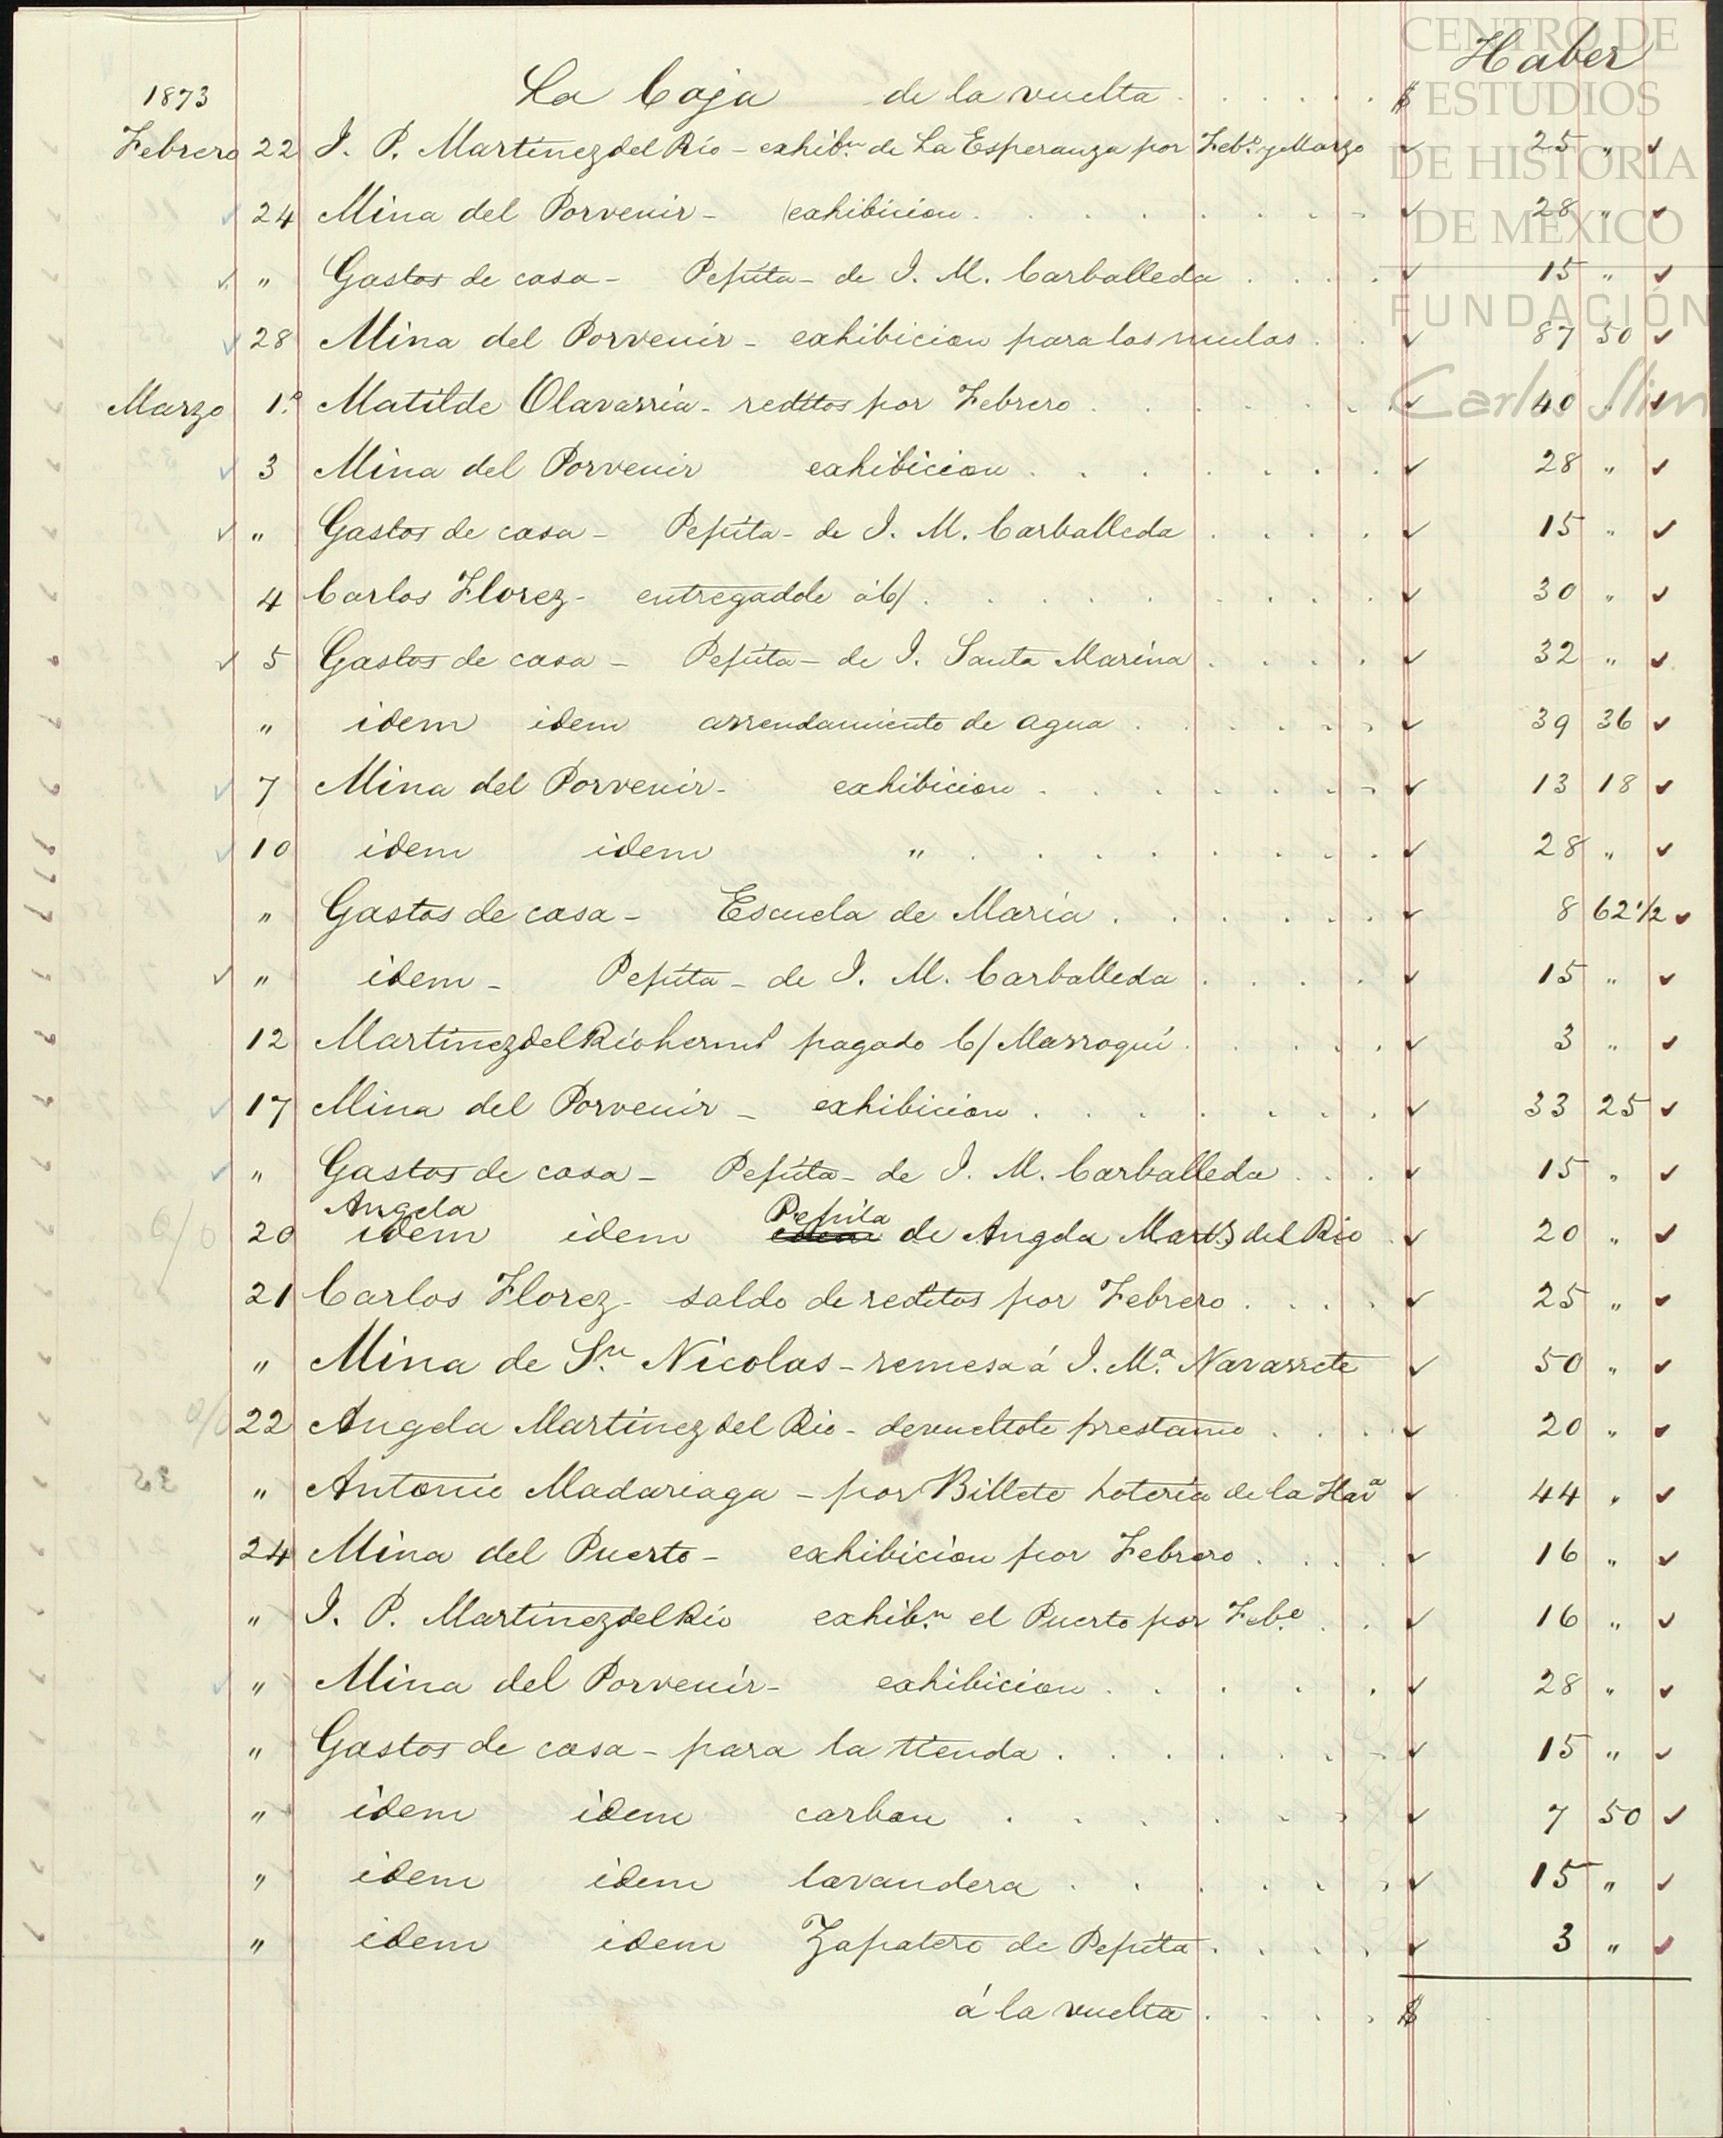 CENTRO DE
ESTUDIOS
DE HISTORIA
DE MÉXICO
FUNDACIÓN
Carlos Slim
Haber
1873 La Caja de la vuelta . . . . . . $
Febrero 22 J. P. Martinez del Rio - exhib.n de La Esperanza por Feb.o y Marzo 25 "
24 Mina del Porvenir - exhibicion 28 "
" Gastos de casa - Pepita - de J. M. Carballeda 15 "
28 Mina del Porvenir - exhibicion para las mulas 87 50
Marzo 1.o Matilde Olavarria - reditos por Febrero 40 "
3 Mina del Porvenir exhibicion 28 "
" Gastos de casa - Pepita - de J. M. Carballeda 15 "
4 Carlos Florez - entregadole á c/ 30 "
5 Gastos de casa - Pepita - de J. Santa Marina 32 "
" idem idem arrendamiento de agua 39 36
7 Mina del Porvenir - exhibicion 13 18
10 idem idem " 28 "
" Gastos de casa - Escuela de Maria 8 62 1/2
" idem - Pepita - de J. M. Carballeda 15 "
12 Martinez del Rio herms pagado C/ Marroqui 3 "
17 Mina del Porvenir - exhibicion 33 25
" Gastos de casa - Pepita - de J. M. Carballeda 15 "
Angela Pepita
20 idem idem idem de Angela Mart.z del Rio 20 "
21 Carlos Florez - saldo de reditos por Febrero 25 "
" Mina de S.n Nicolas - remesa á J. M.a Navarrete 50 "
22 Angela Martinez del Rio - devueltole prestamo 20 "
" Antonio Madariaga - por Billete Loteria de la Hav.a 44 "
24 Mina del Puerto - exhibicion por Febrero 16 "
" J. P. Martinez del Rio exhib.n el Puerto por Feb.o 16 "
" Mina del Porvenir - exhibicion 28 "
" Gastos de casa - para la tienda 15 "
" idem idem carbon 7 50
" idem idem lavandera 15 "
" idem idem Zapatero de Pepita 3 "
á la vuelta . . . . $